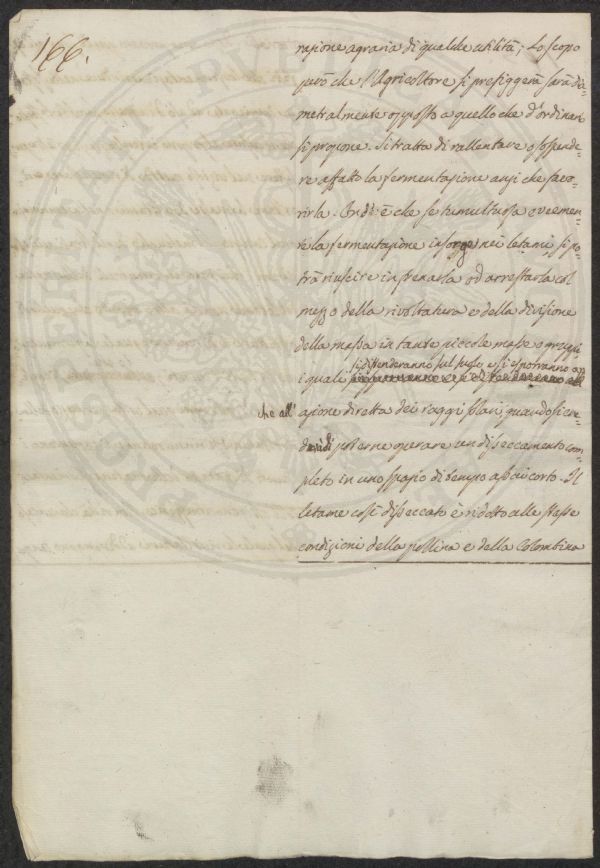 166.
razione agraria di qualche utilità; Lo scopo
però che l'Agricoltore si prefiggerà sarà dia-
metralmente opposto a quello che d'ordinari
si propone. Si tratta di rallentare o sospende-
re affatto la fermentazione anzi che favo-
rirla. Ond'è che se tumultuosa o veemen-
te la fermentazione insorge nei letami, si po-
trà riuscire in frenarla od arrestarla col
mezzo della rivoltatura e della divisione
della massa in tante piccole masse o prezzi
si distenderanno sul suolo e si esporranno an
i quali
che all' azione diretta dei raggi solari, quando si cre-
derà di poterne operare un disseccamento com-
pleto in uno spazio di tempo assai corto. Il
letame così disseccato è ridotto alle stesse
condizioni della pollina e della Colombina